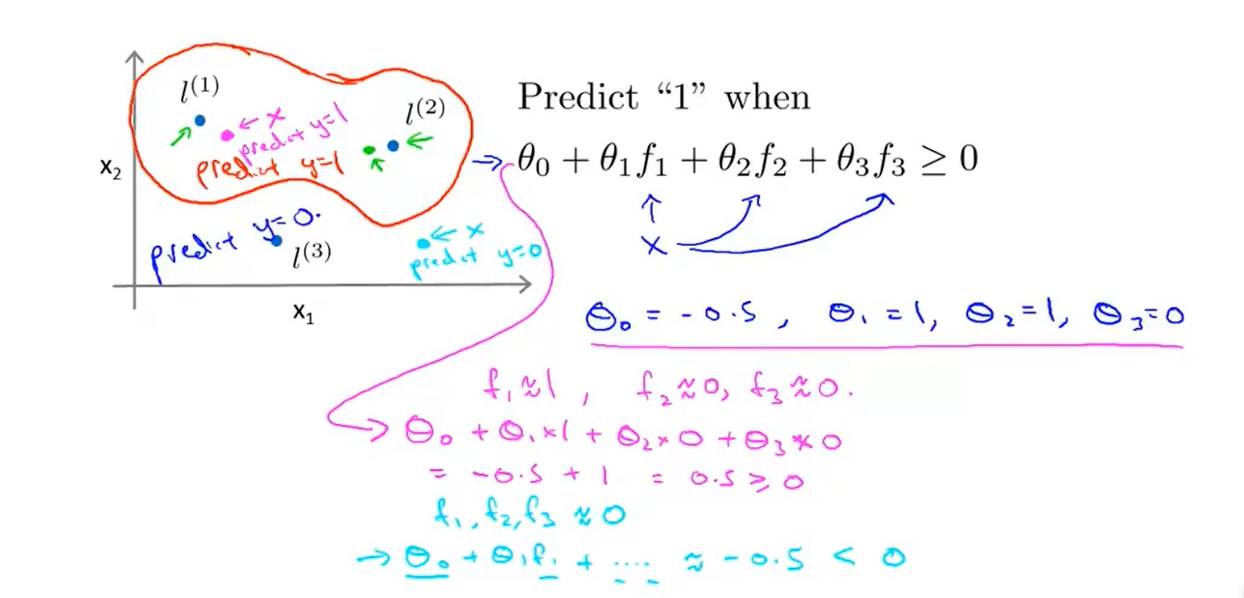 l^{(1)}
x_2
← x
predict y=1
predict y=1
l^{(2)}
predict y=0.
l^{(3)}
← x
predict y=0
x_1
Predict “1” when
→ θ_0 + θ_1 f_1 + θ_2 f_2 + θ_3 f_3 ≥ 0
x
θ_0 = -0.5, θ_1 = 1, θ_2 = 1, θ_3 = 0
f_1 ≈ 1, f_2 ≈ 0, f_3 ≈ 0.
→ θ_0 + θ_1 × 1 + θ_2 × 0 + θ_3 × 0
= -0.5 + 1 = 0.5 ≥ 0
f_1, f_2, f_3 ≈ 0
→ θ_0 + θ_1 f_1 + .... ≈ -0.5 < 0